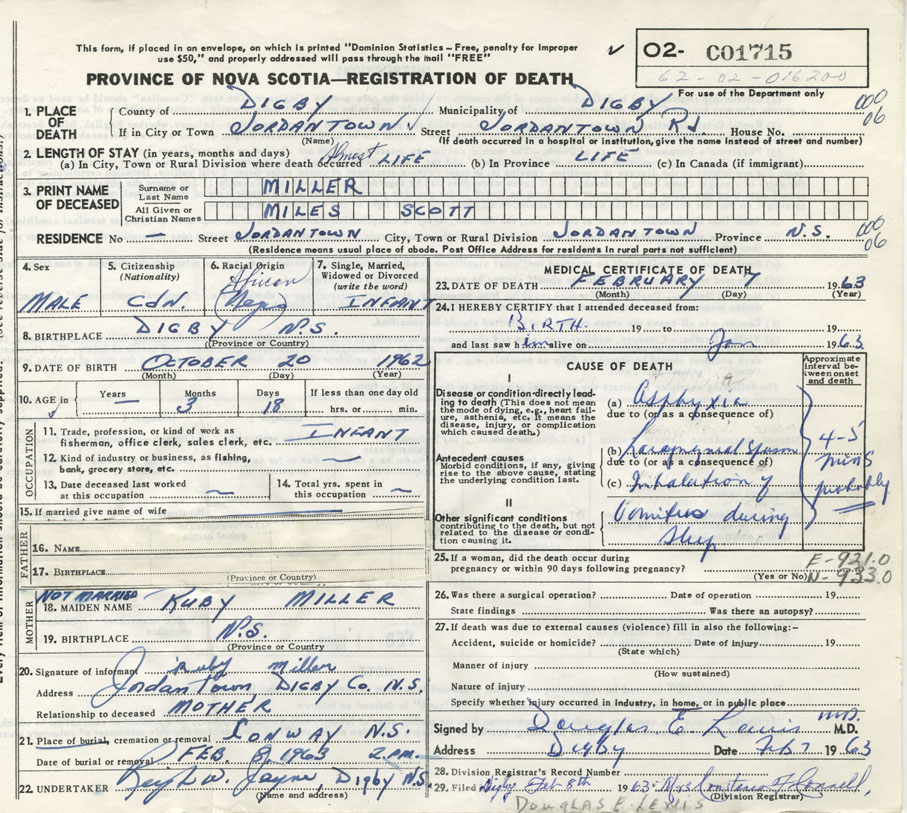 This form, if placed in an envelope, on which is printed "Dominion Statistics—Free, penalty for improper
use $50," and properly addressed will pass through the mail "FREE"
✓ 02- C01715
62-02-016200
For use of the Department only
PROVINCE OF NOVA SCOTIA—REGISTRATION OF DEATH
1. PLACE OF DEATH County of DIGBY Municipality of DIGBY 000 06
If in City or Town JORDANTOWN Street JORDANTOWN Rd House No.
(Name) (If death occurred in a hospital or institution, give the name instead of street and number)
2. LENGTH OF STAY (in years, months and days)
(a) In City, Town or Rural Division where death occurred Almost LIFE (b) In Province LIFE (c) In Canada (if immigrant)
3. PRINT NAME OF DECEASED Surname or Last Name MILLER
All Given or Christian Names MILES SCOTT
RESIDENCE No — Street JORDANTOWN City, Town or Rural Division JORDANTOWN Province N.S. 000 06
(Residence means usual place of abode. Post Office Address for residents in rural parts not sufficient)
4. Sex MALE
5. Citizenship (Nationality) CDN.
6. Racial Origin African Negro
7. Single, Married, Widowed or Divorced (write the word) INFANT
8. BIRTHPLACE DIGBY N.S.
(Province or Country)
9. DATE OF BIRTH OCTOBER 20 1962
(Month) (Day) (Year)
10. AGE in Years — Months 3 Days 18 If less than one day old hrs. or min.
OCCUPATION
11. Trade, profession, or kind of work as fisherman, office clerk, sales clerk, etc. INFANT
12. Kind of industry or business, as fishing, bank, grocery store, etc. —
13. Date deceased last worked at this occupation — 14. Total yrs. spent in this occupation —
15. If married give name of wife
FATHER
16. NAME
17. BIRTHPLACE
(Province or Country)
MOTHER
NOT MARRIED
18. MAIDEN NAME RUBY MILLER
19. BIRTHPLACE N.S.
(Province or Country)
20. Signature of informant Ruby Miller
Address Jordantown DIGBY Co. N.S.
Relationship to deceased MOTHER
21. Place of burial, cremation or removal CONWAY N.S.
Date of burial or removal FEB 8, 1963 2 p.m.
22. UNDERTAKER W. Jayne, Digby N.S.
(Name and address)
MEDICAL CERTIFICATE OF DEATH
23. DATE OF DEATH FEBRUARY 7 1963
(Month) (Day) (Year)
24. I HEREBY CERTIFY that I attended deceased from:
BIRTH 19 to 19
and last saw him alive on Jan 1963
CAUSE OF DEATH
Approximate interval between onset and death
I
Disease or condition directly leading to death (This does not mean the mode of dying, e.g., heart failure, asthenia, etc. It means the disease, injury, or complication which caused death.)
(a) Asphyxia
due to (or as a consequence of)
Antecedent causes
Morbid conditions, if any, giving rise to the above cause, stating the underlying condition last.
(b) Laryngeal Spasm
due to (or as a consequence of)
(c) Inhalation of
Vomitus during
Sleep
4-5 mins probably
II
Other significant conditions
contributing to the death, but not related to the disease or condition causing it.
25. If a woman, did the death occur during pregnancy or within 90 days following pregnancy?
(Yes or No)
E-921.0
N-933.0
26. Was there a surgical operation? Date of operation 19
State findings Was there an autopsy?
27. If death was due to external causes (violence) fill in also the following:-
Accident, suicide or homicide? Date of injury 19
(State which)
Manner of injury
(How sustained)
Nature of injury
Specify whether injury occurred in industry, in home, or in public place
Signed by Douglas E. Lewis M.D. M.D.
Address Digby Date Feb 7 1963
28. Division Registrar's Record Number
29. Filed Digby Feb 8th 1963 Mrs
(Division Registrar)
DOUGLAS E. LEWIS